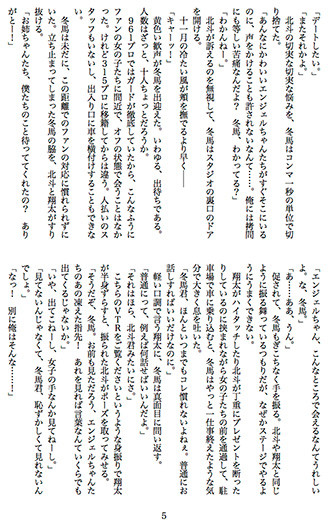 「デートしたい。」
「またそれかよ。」
北斗の切実な切実な悩みを、冬馬はコンマ一秒の単位で切
り捨てた。
「あんなにかわいいエンジェルちゃんたちがすぐそこにいる
のに、声をかけることも許されないなんて……。俺には拷問
にも等しい苦痛なんだよ？　冬馬、わかってる？」
「わかんねーし。」
北斗が訴えるのを無視して、冬馬はスタジオの裏口のドア
を開ける。
十一月の冷たい風が頬を撫でるより早く――
「キャーッ！」
黄色い歓声が冬馬を出迎えた。いわゆる、出待ちである。
人数はざっと、十人ちょっとだろうか。
９６１プロではガードが徹底していたから、こんなふうに
ファンの女の子たちに間近で、オフの状態で会うことはなか
った。けれど３１５プロに移籍してからは違う。人払いのス
タッフもいないし、出入り口に車を横付けすることもできな
い。
冬馬は未だに、この距離でのファンの対応に慣れられずに
いた。立ち止まってしまった冬馬の脇を、北斗と翔太がすり
抜ける。
「お姉ちゃんたち、僕たちのこと待っててくれたの？　あり
がとー！」
「エンジェルちゃん、こんなところで会えるなんてうれしい
よ。な、冬馬。」
「あ……ああ、うん。」
促されて、冬馬もぎこちなく手を振る。北斗や翔太と同じ
ように振る舞っているつもりだが、なぜかステージでやるよ
うにうまくできない。
翔太がハイタッチしたり北斗が丁重にプレゼントを断った
りしているのに挟まれながら女の子たちの前を通過して、駐
車場で車に乗り込むと、冬馬はやっと一仕事終えたような気
分で大きく息を吐いた。
「冬馬君、ほんといつまでもコレ慣れないよねぇ。普通にお
話しすればいいだけなのに。」
軽い口調で言う翔太に、冬馬は真面目に問い返す。
「普通にって、例えば何話せばいいんだよ。」
「それはほら、北斗君みたいにさ。」
こちらのＶＴＲをご覧くださいというような身振りで翔太
が半身ずらすと、振られた北斗がポーズを取ってみせる。
「そうだぞ、冬馬。お前も見ただろう、エンジェルちゃんた
ちのあの凍えた指先！　あれを見れば言葉なんていくらでも
出てくるじゃないか。」
「いや、出てこねーし。女子の手なんか見てねーし。」
「見てないんじゃなくて、冬馬君、恥ずかしくて見れないん
でしょ。」
「なっ！　別に俺はそんな……！」
5